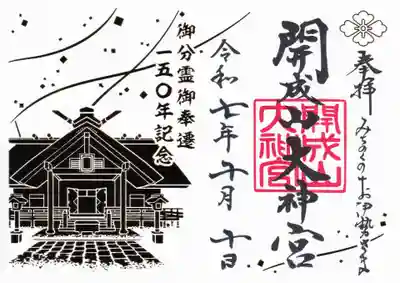 奉拝
みちのくのお伊勢さま
開成山大神宮
開成山
大神宮
令和七年 月 十日
御分霊御奉遷
一五〇年記念